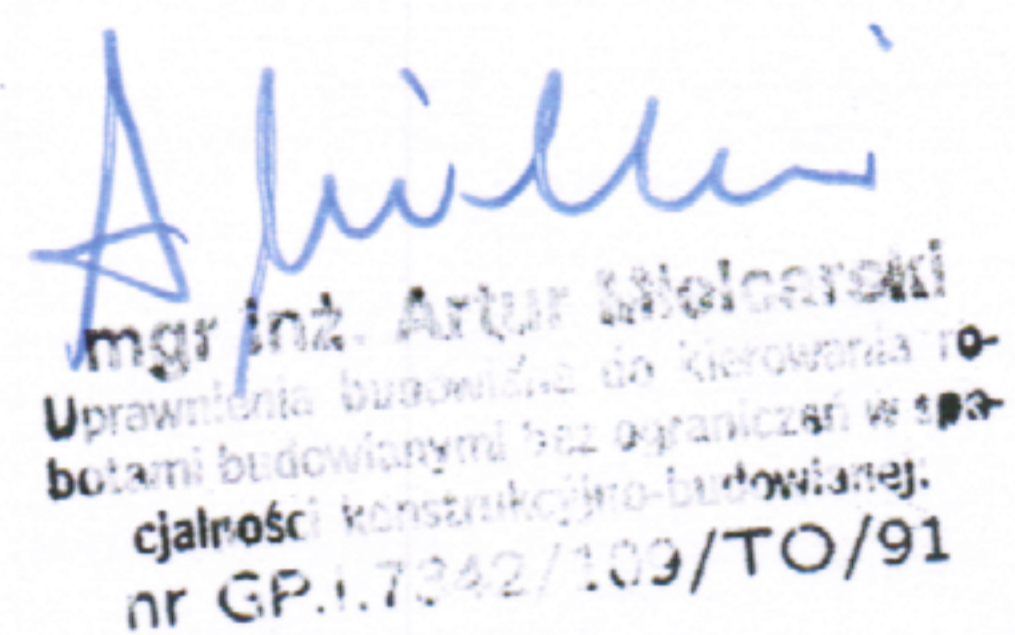 mgr inż. Artur Mielcarski
Uprawnienia budowlane do kierowania ro-
botami budowlanymi bez ograniczeń w spe-
cjalności konstrukcyjno-budowlanej.
nr GP.I.7342/109/TO/91